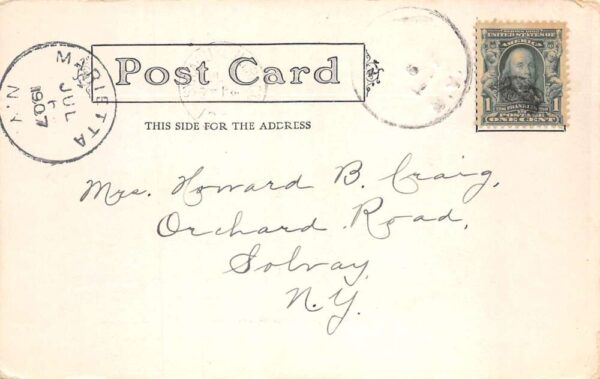 MARIETTA
JUL
6
1907
N.Y.
Post Card
THIS SIDE FOR THE ADDRESS
UNITED STATES OF
AMERICA
1
1
POSTAGE
ONE CENT
Mrs. Howard B. Craig,
Orchard Road,
Solvay,
N.Y.